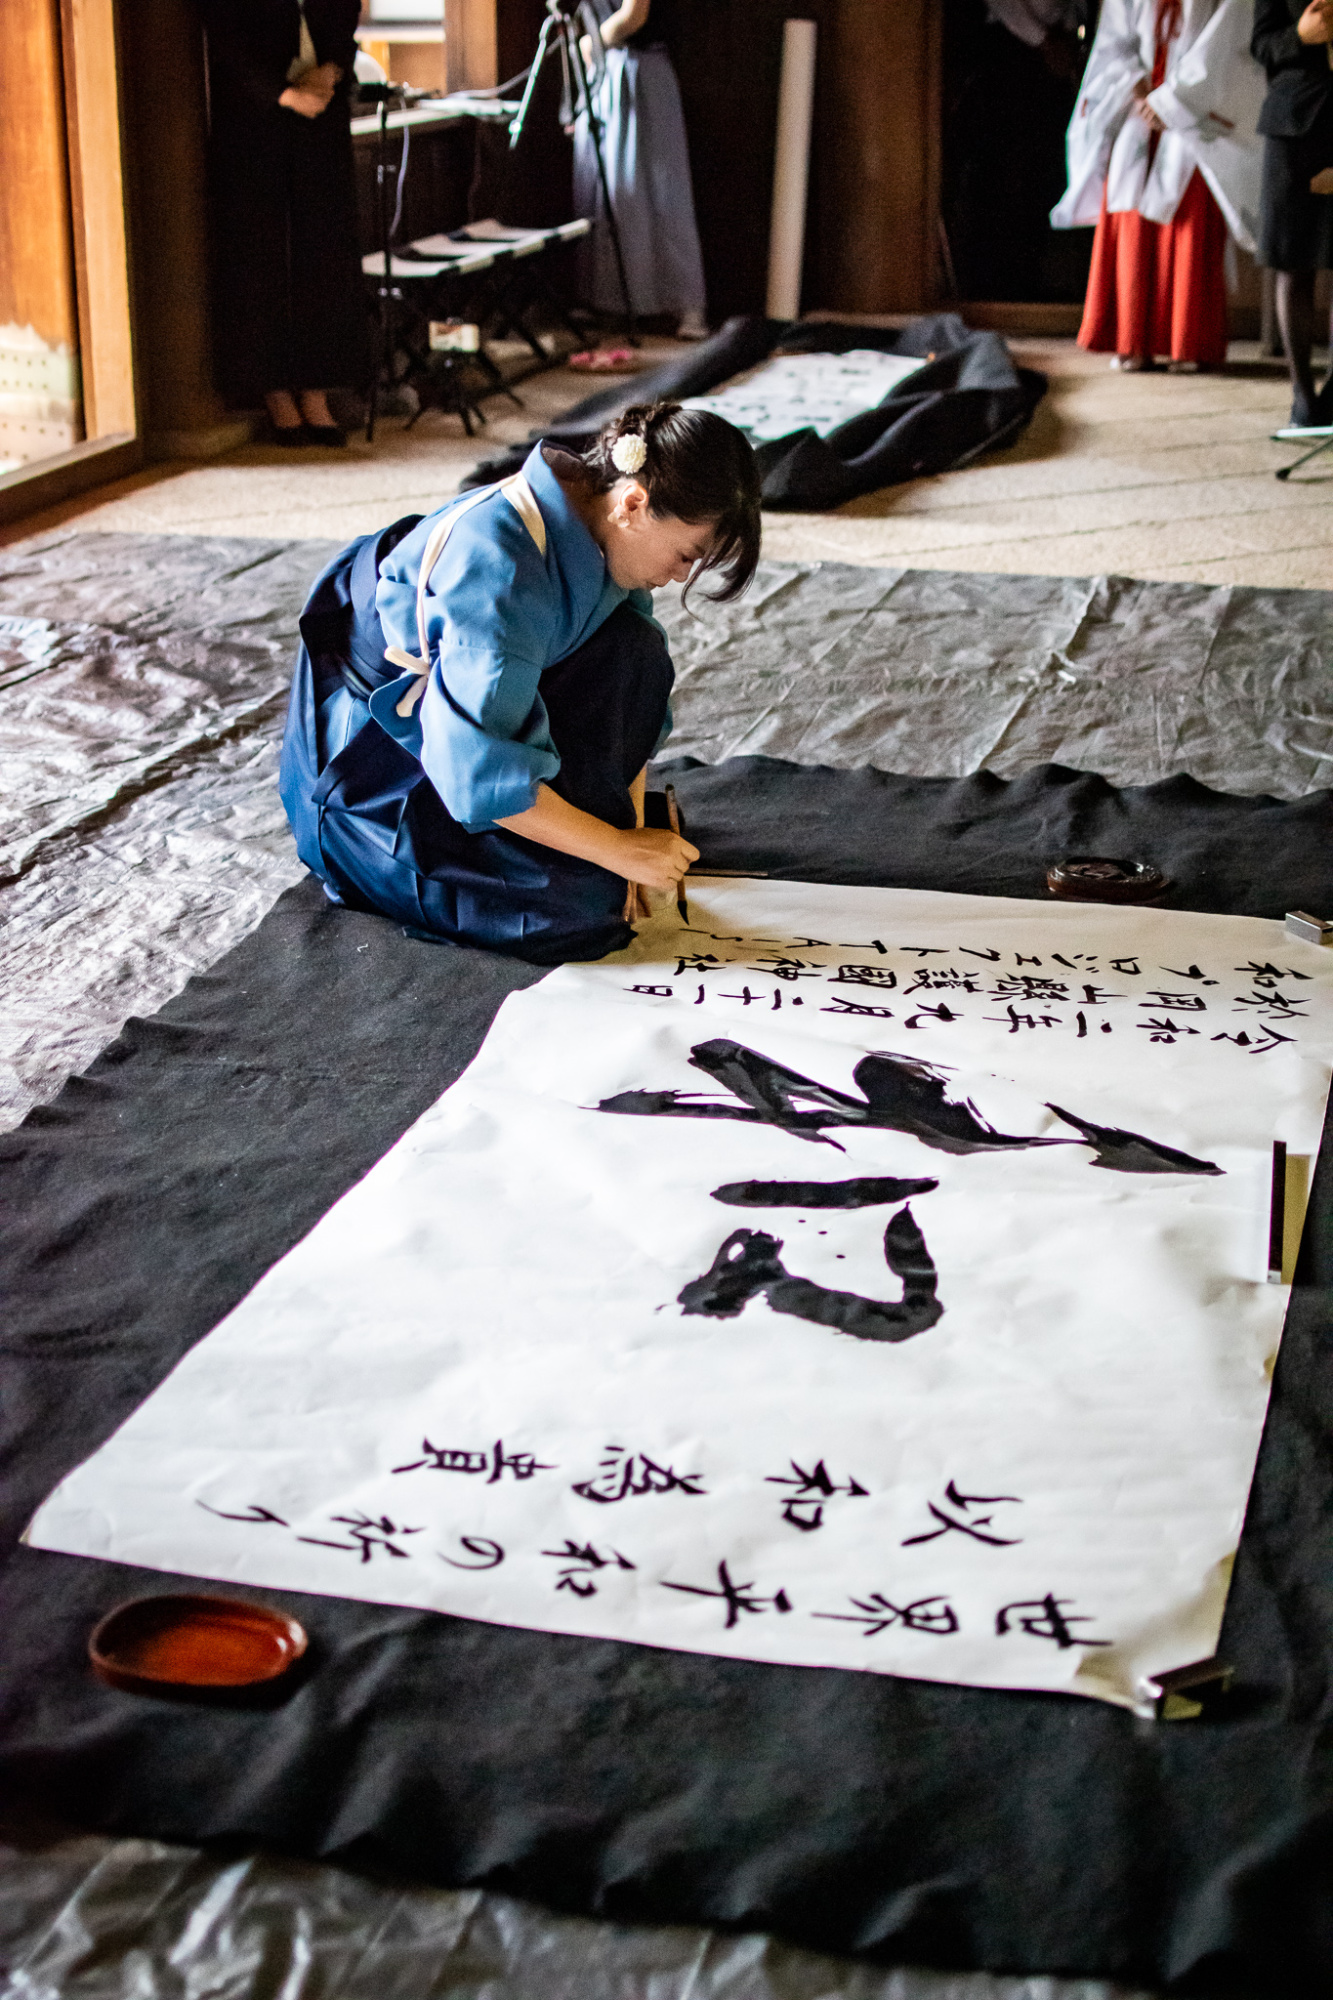 世界平和の祈り
以和為貴
和
令和二年九月二十一日
於岡山縣護國神社
和プロジェクトTAIS